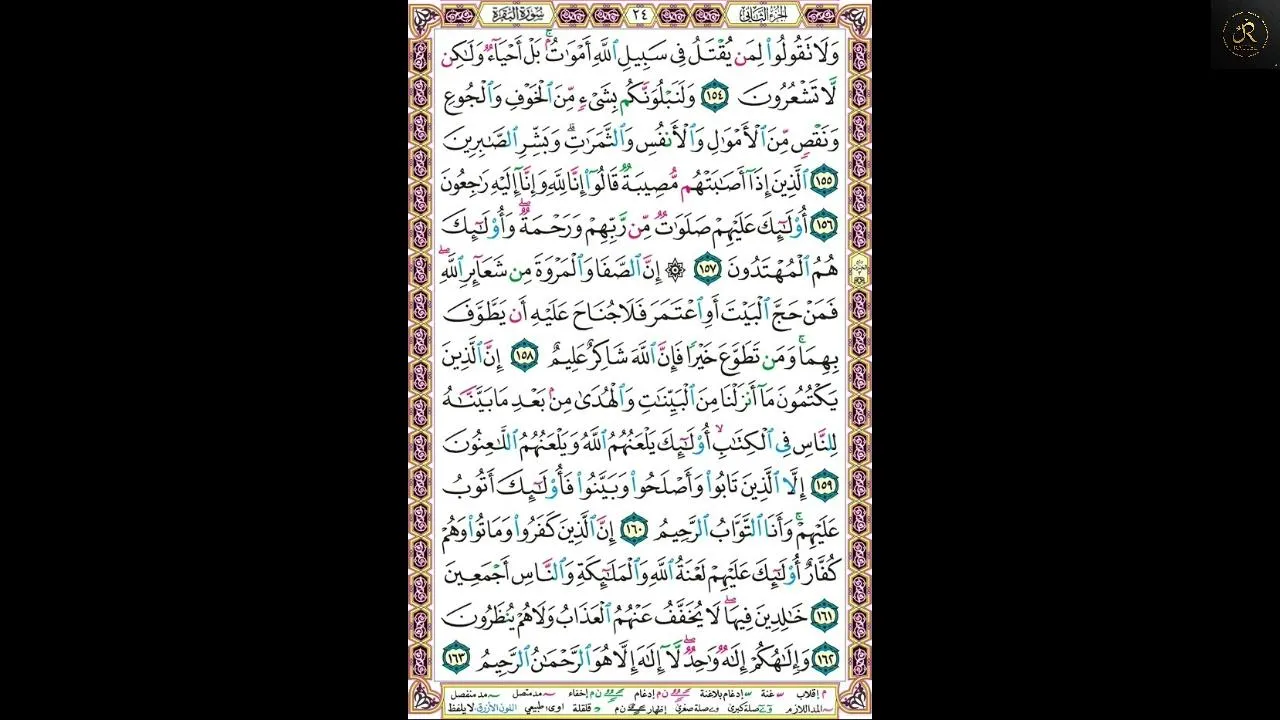 سُورَةُ البَقَرَةِ ٢٤ الجُزءُ الثَّانِي
وَلَا تَقُولُوا۟ لِمَن يُقْتَلُ فِى سَبِيلِ ٱللَّهِ أَمْوَٰتٌۢ ۚ بَلْ أَحْيَآءٌ وَلَٰكِن
لَّا تَشْعُرُونَ ١٥٤ وَلَنَبْلُوَنَّكُم بِشَىْءٍ مِّنَ ٱلْخَوْفِ وَٱلْجُوعِ
وَنَقْصٍ مِّنَ ٱلْأَمْوَٰلِ وَٱلْأَنفُسِ وَٱلثَّمَرَٰتِ ۗ وَبَشِّرِ ٱلصَّٰبِرِينَ
١٥٥ ٱلَّذِينَ إِذَآ أَصَٰبَتْهُم مُّصِيبَةٌ قَالُوٓا۟ إِنَّا لِلَّهِ وَإِنَّآ إِلَيْهِ رَٰجِعُونَ
١٥٦ أُو۟لَٰٓئِكَ عَلَيْهِمْ صَلَوَٰتٌ مِّن رَّبِّهِمْ وَرَحْمَةٌ ۖ وَأُو۟لَٰٓئِكَ
هُمُ ٱلْمُهْتَدُونَ ١٥٧ ۞ إِنَّ ٱلصَّفَا وَٱلْمَرْوَةَ مِن شَعَآئِرِ ٱللَّهِ ۖ
فَمَنْ حَجَّ ٱلْبَيْتَ أَوِ ٱعْتَمَرَ فَلَا جُنَاحَ عَلَيْهِ أَن يَطَّوَّفَ
بِهِمَا ۚ وَمَن تَطَوَّعَ خَيْرًا فَإِنَّ ٱللَّهَ شَاكِرٌ عَلِيمٌ ١٥٨ إِنَّ ٱلَّذِينَ
يَكْتُمُونَ مَآ أَنزَلْنَا مِنَ ٱلْبَيِّنَٰتِ وَٱلْهُدَىٰ مِنۢ بَعْدِ مَا بَيَّنَّٰهُ
لِلنَّاسِ فِى ٱلْكِتَٰبِ ۙ أُو۟لَٰٓئِكَ يَلْعَنُهُمُ ٱللَّهُ وَيَلْعَنُهُمُ ٱللَّٰعِنُونَ
١٥٩ إِلَّا ٱلَّذِينَ تَابُوا۟ وَأَصْلَحُوا۟ وَبَيَّنُوا۟ فَأُو۟لَٰٓئِكَ أَتُوبُ
عَلَيْهِمْ ۚ وَأَنَا ٱلتَّوَّابُ ٱلرَّحِيمُ ١٦٠ إِنَّ ٱلَّذِينَ كَفَرُوا۟ وَمَاتُوا۟ وَهُمْ
كُفَّارٌ أُو۟لَٰٓئِكَ عَلَيْهِمْ لَعْنَةُ ٱللَّهِ وَٱلْمَلَٰٓئِكَةِ وَٱلنَّاسِ أَجْمَعِينَ
١٦١ خَٰلِدِينَ فِيهَا ۖ لَا يُخَفَّفُ عَنْهُمُ ٱلْعَذَابُ وَلَا هُمْ يُنظَرُونَ
١٦٢ وَإِلَٰهُكُمْ إِلَٰهٌ وَٰحِدٌ ۖ لَّآ إِلَٰهَ إِلَّا هُوَ ٱلرَّحْمَٰنُ ٱلرَّحِيمُ ١٦٣
إقلاب غنة إدغام بلاغنة إدغام إخفاء مد متصل مد منفصل
المد اللازم صلة كبرى صلة صغرى إظهار قلقلة طبيعي اللون الأزرق لا يلفظ